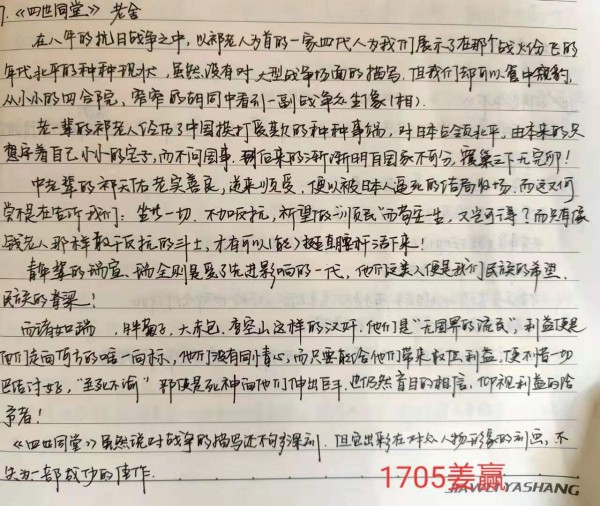 7.《四世同堂》 老舍
在八年的抗日战争之中,以祁老人为首的一家四代人为我们展示了在那个战火纷飞的
年代北平的种种现状,虽然没有对大型战争场面的描写,但我们却可以管中窥豹,
从小小的四合院,窄窄的胡同中看到一副战争众生象(相).
老一辈的祁老人经历了中国挨打受欺的种种事端,对日本占领北平,由本来的只
想守着自己小小的宅子,而不问国事,到后来的渐渐明白国家不可分,覆巢之下无完卵!
中老辈的祁天佑老实善良,逆来顺受,便以被日本人逼死的结局收场,而这又何
尝不是在告诉我们:坐以一切,不加反抗,祈望做“顺民”而苟全一生,又岂可得?而只有像
钱老人那样敢于反抗的斗士,才有可以(能)挺直腰杆活下来!
青年辈的瑞宣、瑞全则是受了先进影响的一代,他们这类人便是我们民族的希望,
民族的脊梁!
而诸如瑞 ,胖菊子,大赤包,李空山这样的汉奸,他们是“无国界的流民”,利益便是
他们走向何方的唯一向标,他们没有同情心,而只要能给他们带来权位利益,便不惜一切
巴结讨好,“至死不渝”那便是死神向他们伸出巨手,也仍然盲目的相信,仰视利益的给
予者!
《四世同堂》虽然说对战争的描写还不够深刻,但它出彩在对众人物形象的刻画,不
失为一部战炒的佳作.
1705姜赢
JIAWEN YASHANG